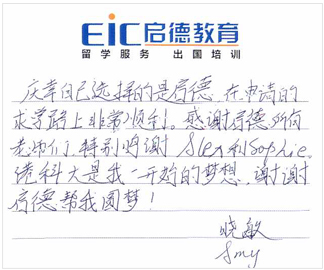 EIC启德教育
留学服务 出国培训
庆幸自己选择的是启德,在申请的
求学路上非常顺利。感谢启德所有
老师们,特别感谢Alex和Sophie。
港科大是我一开始的梦想,谢谢
启德帮我圆梦!
晓敏
Amy